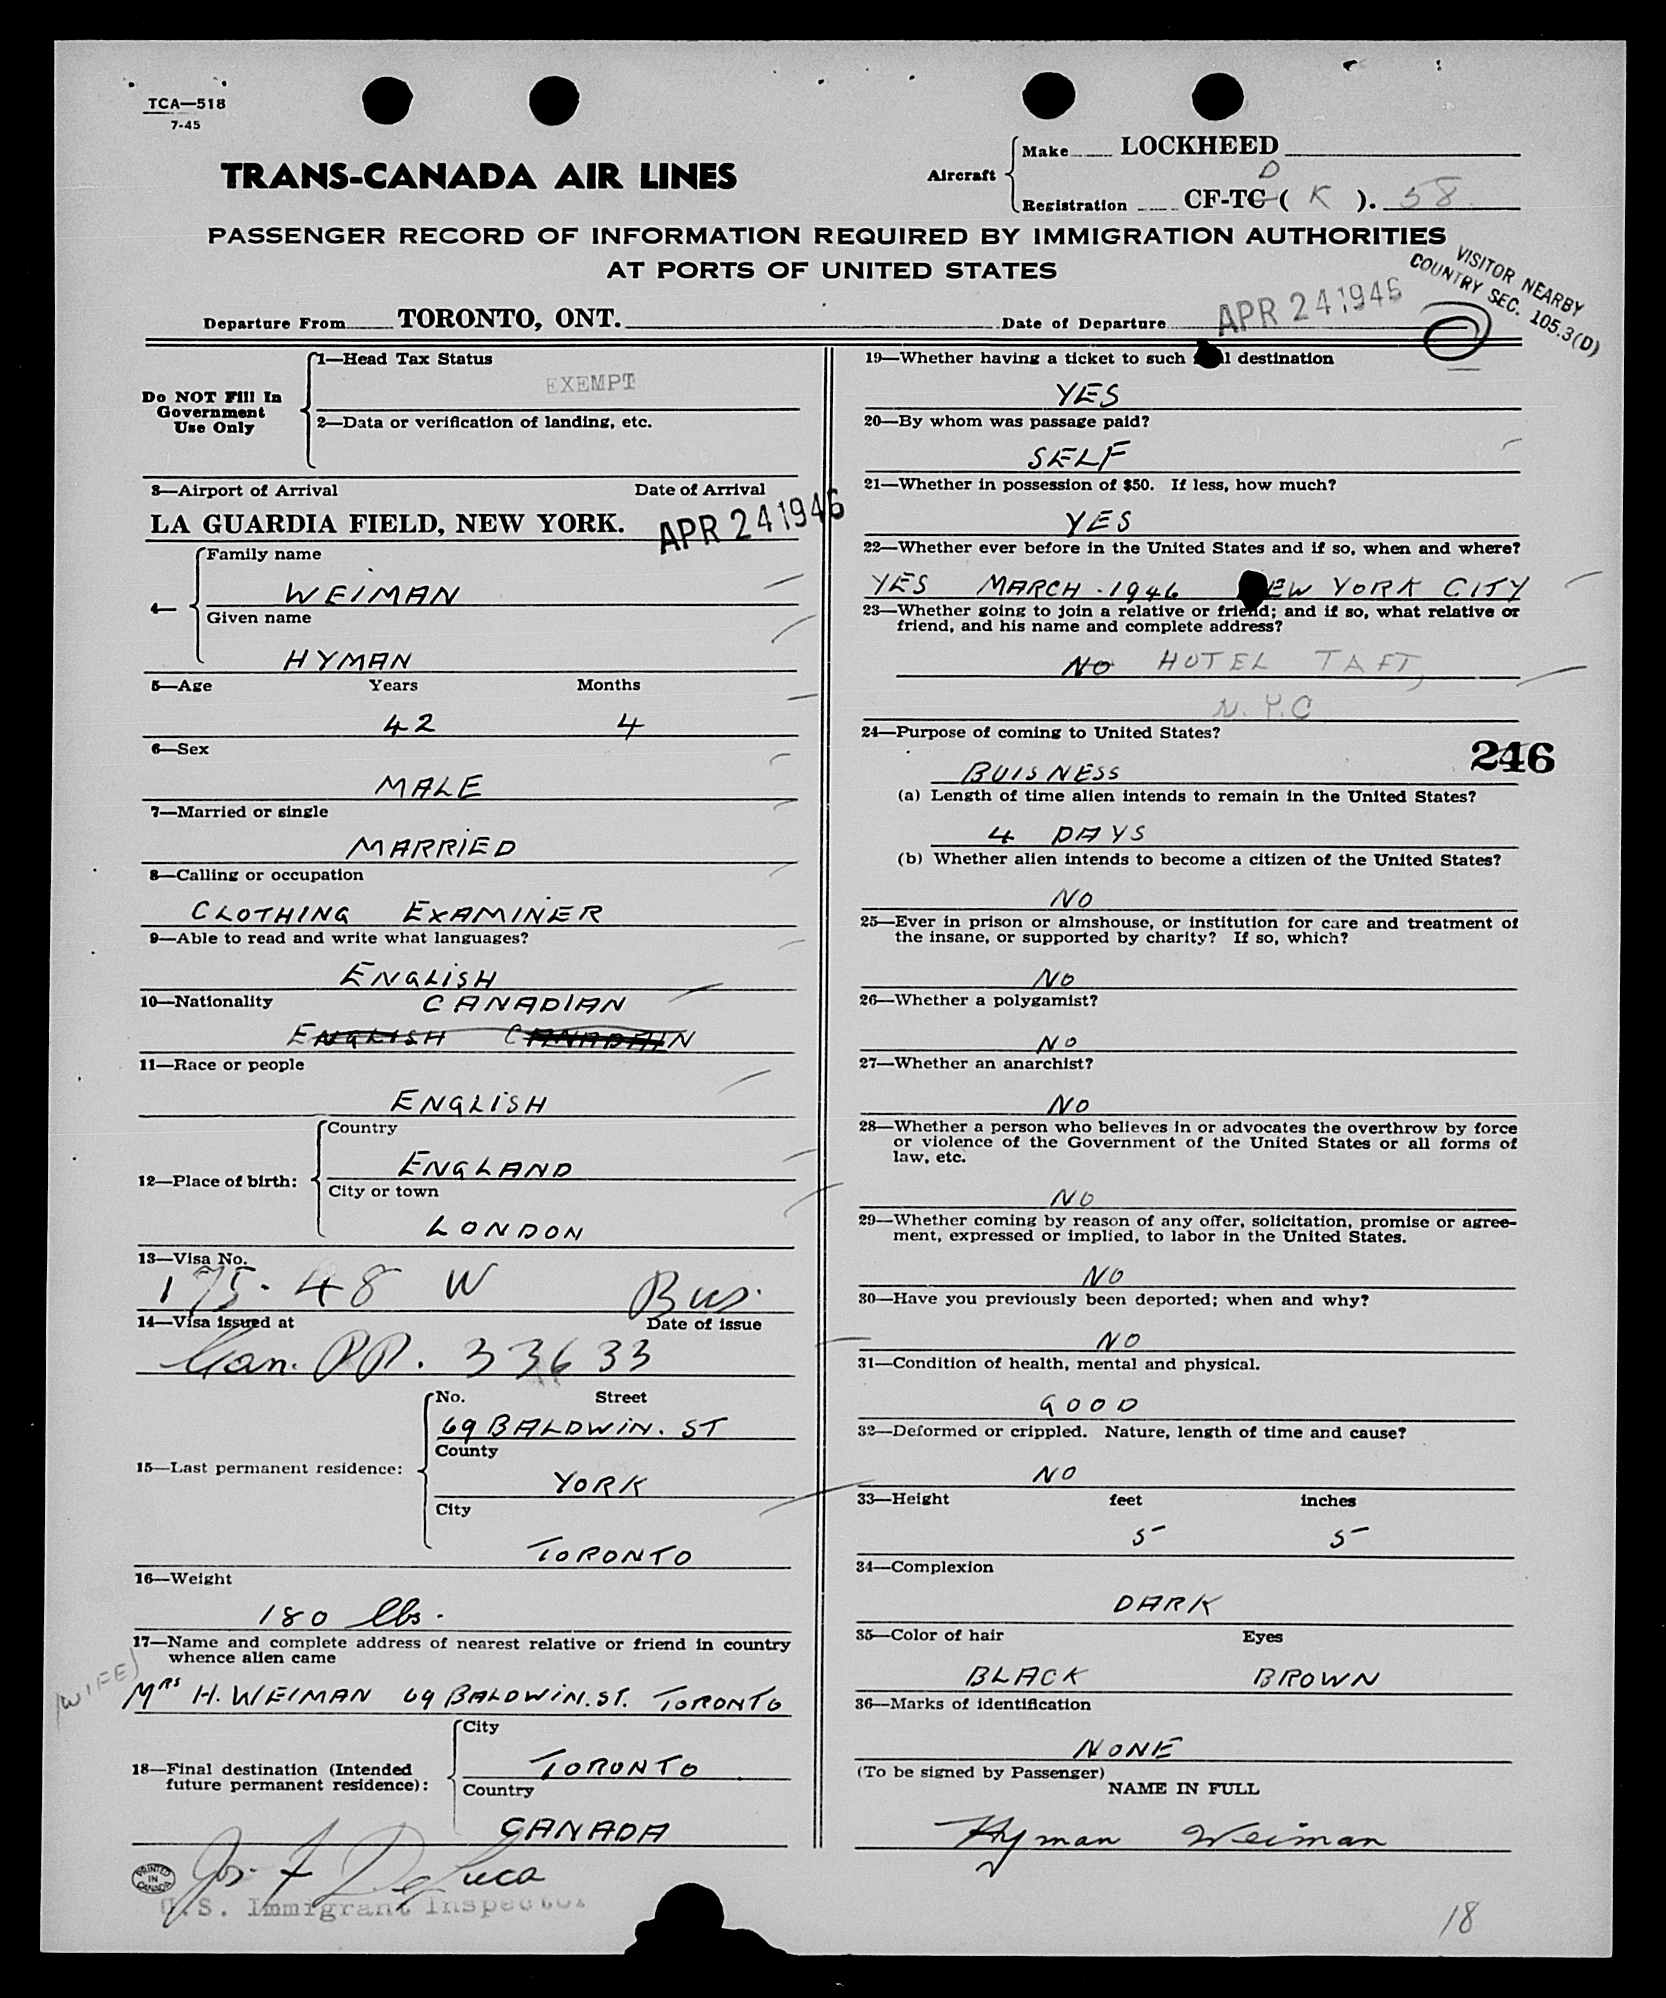 TCA—518
7-45
TRANS-CANADA AIR LINES
Aircraft
Make LOCKHEED
D
Registration CF-TC ( K ). 58
PASSENGER RECORD OF INFORMATION REQUIRED BY IMMIGRATION AUTHORITIES
AT PORTS OF UNITED STATES
VISITOR NEARBY
COUNTRY SEC. 105.3(D)
Departure From TORONTO, ONT. Date of Departure APR 24 1946
Do NOT Fill In
Government
Use Only
1—Head Tax Status
EXEMPT
2—Data or verification of landing, etc.
3—Airport of Arrival Date of Arrival
LA GUARDIA FIELD, NEW YORK. APR 24 1946
4—
Family name
WEIMAN
Given name
HYMAN
5—Age Years Months
42 4
6—Sex
MALE
7—Married or single
MARRIED
8—Calling or occupation
CLOTHING EXAMINER
9—Able to read and write what languages?
ENGLISH
10—Nationality CANADIAN
ENGLISH CANADAIN
11—Race or people
ENGLISH
12—Place of birth:
Country
ENGLAND
City or town
LONDON
13—Visa No.
175-48 W Bus.
14—Visa issued at Date of issue
Can. PP. 33633
15—Last permanent residence:
No. Street
69 BALDWIN. ST
County
YORK
City
TORONTO
16—Weight
180 lbs.
17—Name and complete address of nearest relative or friend in country
whence alien came
(WIFE)
MRS H. WEIMAN 69 BALDWIN. ST. TORONTO
18—Final destination (Intended
future permanent residence):
City
TORONTO
Country
CANADA
PRINTED
IN
CANADA
Jos. F DeLuca
U.S. Immigrant Inspector
19—Whether having a ticket to such l destination
YES
20—By whom was passage paid?
SELF
21—Whether in possession of $50. If less, how much?
YES
22—Whether ever before in the United States and if so, when and where?
YES MARCH - 1946 EW YORK CITY
23—Whether going to join a relative or friend; and if so, what relative or
friend, and his name and complete address?
NO HOTEL TAFT,
N.Y.C
24—Purpose of coming to United States?
246
BUISNESS
(a) Length of time alien intends to remain in the United States?
4 DAYS
(b) Whether alien intends to become a citizen of the United States?
NO
25—Ever in prison or almshouse, or institution for care and treatment of
the insane, or supported by charity? If so, which?
NO
26—Whether a polygamist?
NO
27—Whether an anarchist?
NO
28—Whether a person who believes in or advocates the overthrow by force
or violence of the Government of the United States or all forms of
law, etc.
NO
29—Whether coming by reason of any offer, solicitation, promise or agree-
ment, expressed or implied, to labor in the United States.
NO
30—Have you previously been deported; when and why?
NO
31—Condition of health, mental and physical.
GOOD
32—Deformed or crippled. Nature, length of time and cause?
NO
33—Height feet inches
5 5
34—Complexion
DARK
35—Color of hair Eyes
BLACK BROWN
36—Marks of identification
NONE
(To be signed by Passenger)
NAME IN FULL
Hyman Weiman
18